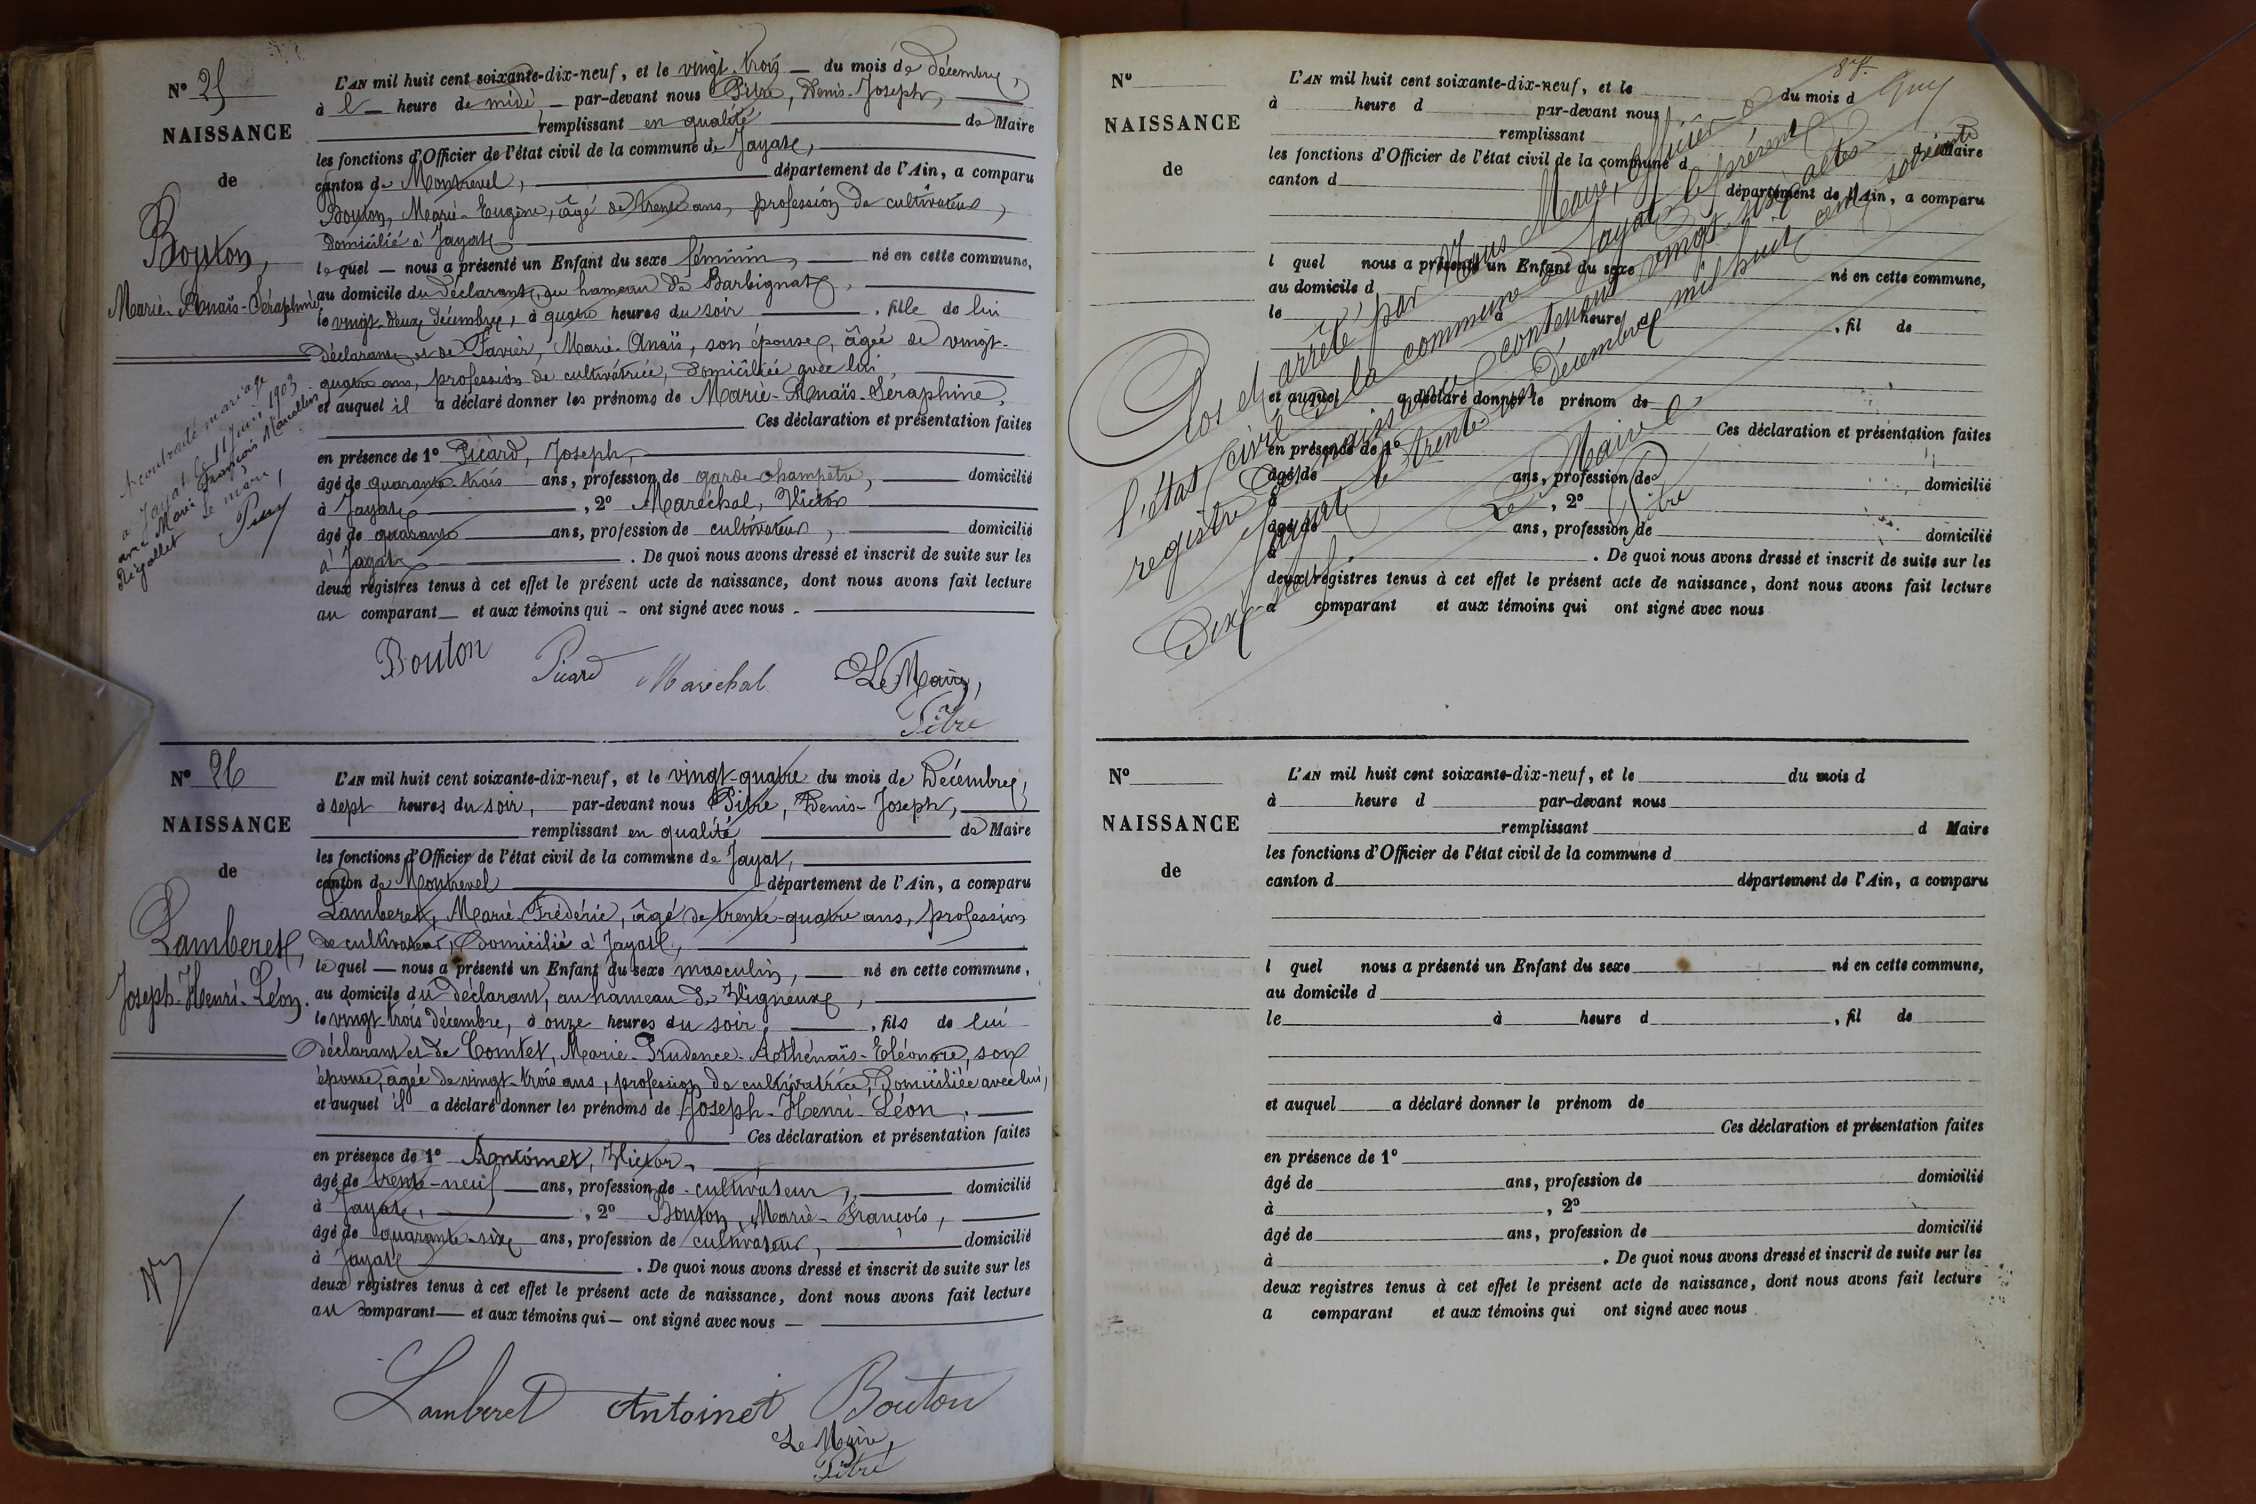 N° 25
NAISSANCE
de
Bouton,
Marie-Anaïs-Séraphine
A contracté mariage
à Jayat le 11 Juin 1903
avec Marie François Marcellin
Rigollet
Le maire,
L'AN mil huit cent soixante-dix-neuf, et le vingt-trois du mois de décembre,
à l' heure de midi, par-devant nous Pitre, Denis-Joseph,
remplissant en qualité de Maire
les fonctions d'Officier de l'état civil de la commune de Jayat,
canton de Montrevel, département de l'Ain, a comparu
Bouton, Marie-Eugène, âgé de trente ans, profession de cultivateur,
domicilié à Jayat
lequel nous a présenté un Enfant du sexe féminin, né en cette commune,
au domicile du déclarant, au hameau de Barbignat,
le vingt-deux décembre, à quatre heures du soir, fille de lui
déclarant et de Favier, Marie-Anaïs, son épouse, âgée de vingt-
quatre ans, profession de cultivatrice, domiciliée avec lui,
et auquel il a déclaré donner les prénoms de Marie-Anaïs-Séraphine,
Ces déclaration et présentation faites
en présence de 1° Picard, Joseph,
âgé de quarante-trois ans, profession de garde champêtre, domicilié
à Jayat, 2° Maréchal, Victor
âgé de quarante ans, profession de cultivateur, domicilié
à Jayat. De quoi nous avons dressé et inscrit de suite sur les
deux registres tenus à cet effet le présent acte de naissance, dont nous avons fait lecture
au comparant et aux témoins qui ont signé avec nous.
Bouton Picard Maréchal Le Maire,
Pitre
N° 26
NAISSANCE
de
Lamberet,
Joseph-Henri-Léon.
L'AN mil huit cent soixante-dix-neuf, et le vingt-quatre du mois de Décembre,
à sept heures du soir, par-devant nous Pitre, Denis-Joseph,
remplissant en qualité de Maire
les fonctions d'Officier de l'état civil de la commune de Jayat,
canton de Montrevel département de l'Ain, a comparu
Lamberet, Marie-Frédéric, âgé de trente-quatre ans, profession
de cultivateur, domicilié à Jayat,
lequel nous a présenté un Enfant du sexe masculin, né en cette commune,
au domicile du déclarant, au hameau de Vigneux,
le vingt-trois décembre, à onze heures du soir, fils de lui
déclarant et de Comtet, Marie-Prudence-Athénaïs-Eléonore, son
épouse, âgée de vingt-trois ans, profession de cultivatrice, domiciliée avec lui,
et auquel il a déclaré donner les prénoms de Joseph-Henri-Léon.
Ces déclaration et présentation faites
en présence de 1° Antoinet, Victor,
âgé de trente-neuf ans, profession de cultivateur, domicilié
à Jayat, 2° Bouton, Marie-François,
âgé de quarante-six ans, profession de cultivateur, domicilié
à Jayat. De quoi nous avons dressé et inscrit de suite sur les
deux registres tenus à cet effet le présent acte de naissance, dont nous avons fait lecture
au comparant et aux témoins qui ont signé avec nous
Lamberet Antoinet Bouton
Le Maire,
Pitre
N°
NAISSANCE
de
L'AN mil huit cent soixante-dix-neuf, et le du mois d
à heure d par-devant nous
remplissant d Maire
les fonctions d'Officier de l'état civil de la commune d
canton d département de l'Ain, a comparu
l quel nous a présenté un Enfant du sexe né en cette commune,
au domicile d
le à heure d , fil de
et auquel a déclaré donner le prénom de
Ces déclaration et présentation faites
en présence de 1°
âgé de ans, profession de domicilié
à , 2°
âgé de ans, profession de domicilié
à . De quoi nous avons dressé et inscrit de suite sur les
deux registres tenus à cet effet le présent acte de naissance, dont nous avons fait lecture
a comparant et aux témoins qui ont signé avec nous
Clos et arrêté par Nous Maire, Officier de
l'état civil de la commune de Jayat le présent
registre des naissances contenant vingt-six actes
Jayat le trente un décembre mil huit cent soixante
Dix-neuf.
Le Maire
Pitre
N°
NAISSANCE
de
L'AN mil huit cent soixante-dix-neuf, et le du mois d
à heure d par-devant nous
remplissant d Maire
les fonctions d'Officier de l'état civil de la commune d
canton d département de l'Ain, a comparu
l quel nous a présenté un Enfant du sexe né en cette commune,
au domicile d
le à heure d , fil de
et auquel a déclaré donner le prénom de
Ces déclaration et présentation faites
en présence de 1°
âgé de ans, profession de domicilié
à , 2°
âgé de ans, profession de domicilié
à . De quoi nous avons dressé et inscrit de suite sur les
deux registres tenus à cet effet le présent acte de naissance, dont nous avons fait lecture
a comparant et aux témoins qui ont signé avec nous